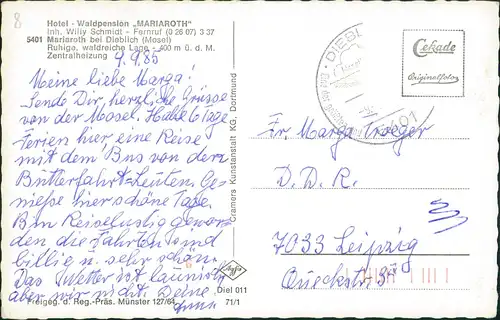 8
Hotel - Waldpension „MARIAROTH"
Inh. Willy Schmidt - Fernruf (0 26 07) 3 37
5401 Mariaroth bei Dieblich (Mosel)
Ruhige, waldreiche Lage - 400 m ü. d. M.
Zentralheizung
4.9.85
Meine liebe Marga!
Sende Dir herzliche Grüsse
von der Mosel. Habe 6 Tage
Ferien hier, eine Reise
mit dem Bus von den
Butterfahrt-Leuten. Ge-
nieße hier schöne Tage.
Bin Reiselustig gewor-
den die Fahrten sind
billig u. sehr schön.
Das Wetter ist launisch
aber wir nicht. Deine
Freigeg. d. Reg.-Präs. Münster 127/64
Cramers Kunstanstalt KG, Dortmund
Agfa
Diel 011
71/1
DIEBL
5401
Cekade
Originalfoto
Fr. Marga Troeger
D. D. R.
7033 Leipzig
Queckstr. 37